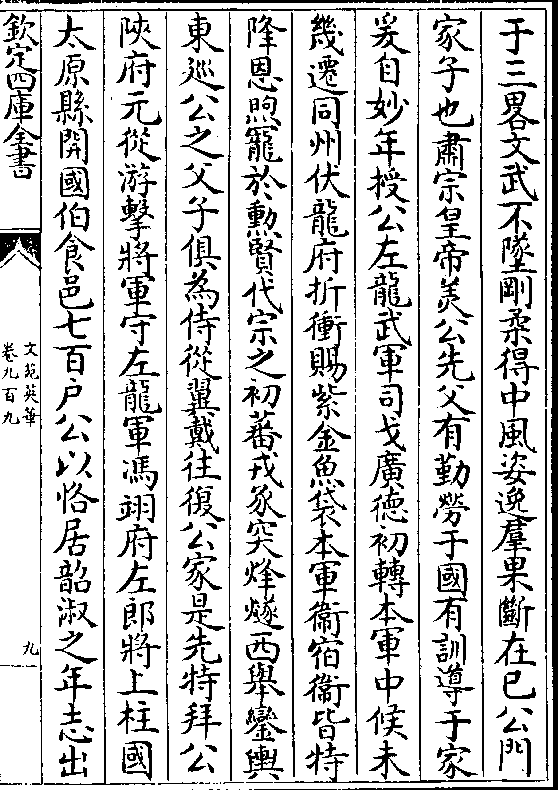 于三畧文武不墜剛柔得中風姿逸羣果斷在已公門
家子也肅宗皇帝羙公先父有勤勞于國有訓導于家
爰自妙年授公左龍武軍司戈廣德初轉本軍中候未
幾遷同州伏龍府折衝賜紫金魚袋本軍衛宿衛皆特
降恩煦寵於勲賢代宗之初蕃戎豕突烽燧西舉鑾輿
東廵公之父子俱為侍從翼戴往復公家是先特拜公
陜府元從游擊將軍守左龍軍馮翊府左郎將上柱國
太原縣開國伯食邑七百户公以恪居韶淑之年志出
欽定四庫全書
文苑英華
卷九百九
九